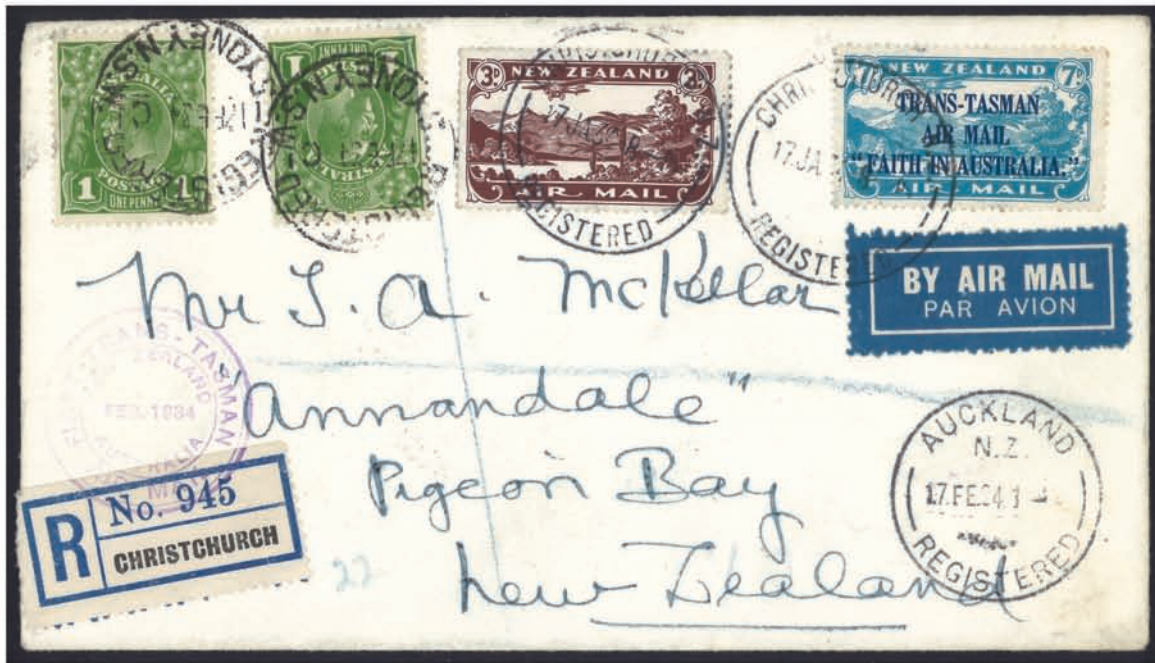 AUSTRALIA
1 1
POSTAGE
ONE PENNY
REGISTERED SYDNEY N.S.W
ONE PENNY
1
AUSTRALIA
REGISTERED SYDNEY N.S.W
3D NEW ZEALAND 3D
AIR MAIL
CHRISTCHURCH N.Z.
17 JA 34
REGISTERED
CHRISTCHURCH
17 JA
REGISTERED
7D NEW ZEALAND 7D
TRANS-TASMAN
AIR MAIL
"FAITH IN AUSTRALIA."
AIR MAIL
BY AIR MAIL
PAR AVION
Mr J. A. McKellar
"Annandale"
Pigeon Bay
New Zealand
TRANS-TASMAN
ZEALAND
FEB. 1934
AUSTRALIA
MAIL
R
No. 945
CHRISTCHURCH
22
AUCKLAND
N.Z.
17.FE.34.
REGISTERED